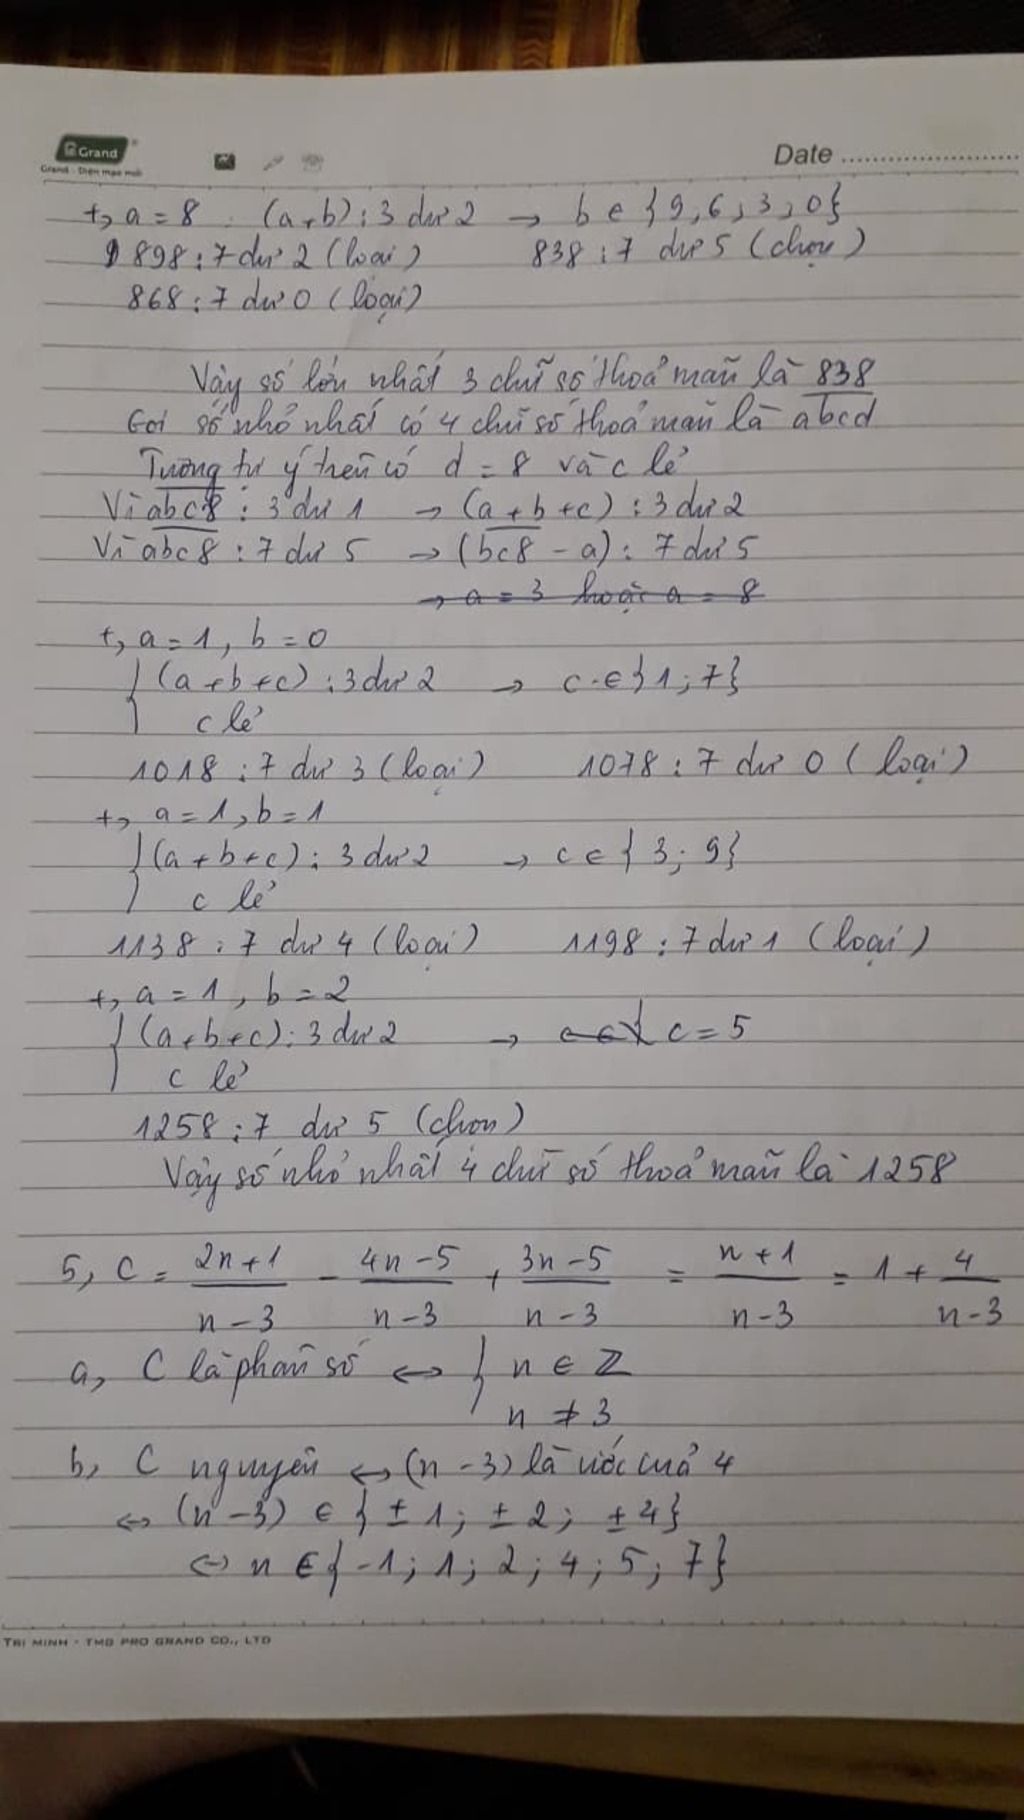 Grand
Grand - Diện mạo mới
Date
+, a = 8 (a+b) : 3 dư 2 → b ∈ {9, 6, 3, 0}
898 : 7 dư 2 (loại) 838 : 7 dư 5 (chọn)
868 : 7 dư 0 (loại)
Vậy số lớn nhất 3 chữ số thoả mãn là 838
Gọi số nhỏ nhất có 4 chữ số thoả mãn là abcd
Tương tự ý trên có d = 8 và c lẻ
Vì abc8 : 3 dư 1 → (a + b + c) : 3 dư 2
Vì abc8 : 7 dư 5 → (bc8 - a) : 7 dư 5
→ a = 3 hoặc a = 8
+, a = 1, b = 0
{ (a+b+c) : 3 dư 2 → c ∈ {1; 7}
c lẻ
1018 : 7 dư 3 (loại) 1078 : 7 dư 0 (loại)
+, a = 1, b = 1
{ (a+b+c) : 3 dư 2 → c ∈ {3; 9}
c lẻ
1138 : 7 dư 4 (loại) 1198 : 7 dư 1 (loại)
+, a = 1, b = 2
{ (a+b+c) : 3 dư 2 → c = 5
c lẻ
1258 : 7 dư 5 (chọn)
Vậy số nhỏ nhất 4 chữ số thoả mãn là 1258
5, C = (2n+1)/(n-3) - (4n-5)/(n-3) + (3n-5)/(n-3) = (n+1)/(n-3) = 1 + 4/(n-3)
a, C là phân số ↔ { n ∈ Z
n ≠ 3
b, C nguyên ↔ (n-3) là ước của 4
↔ (n-3) ∈ {±1; ±2; ±4}
↔ n ∈ {-1; 1; 2; 4; 5; 7}
TRI MINH - TMG PRO GRAND CO., LTD